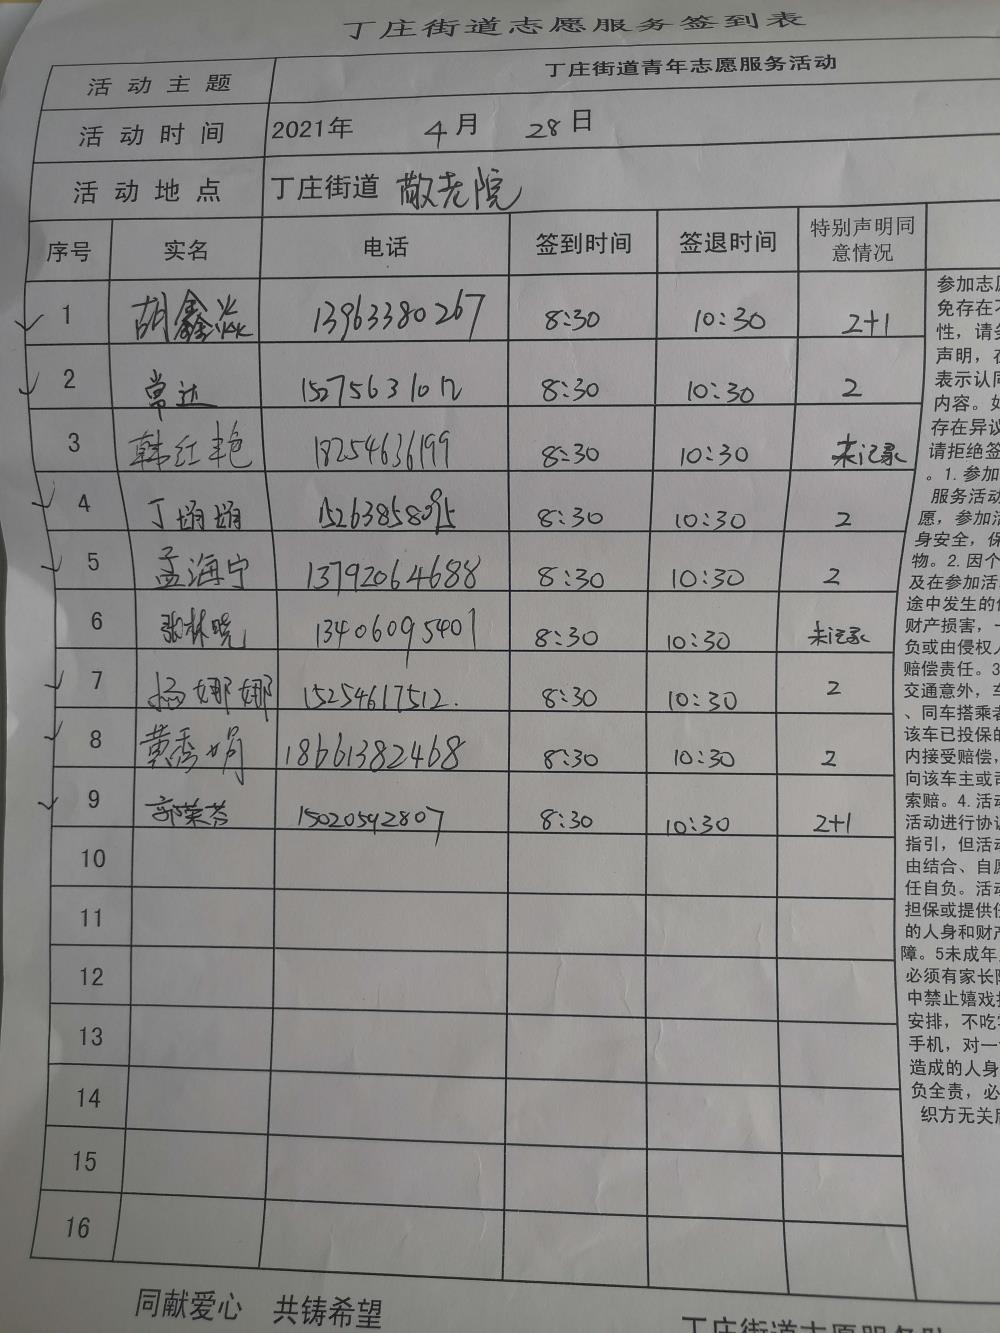 丁庄街道志愿服务签到表
活动主题 丁庄街道青年志愿服务活动
活动时间 2021年 4月 28日
活动地点 丁庄街道 敬老院
序号 实名 电话 签到时间 签退时间 特别声明同意情况
1 胡鑫焱 13963380267 8:30 10:30 2+1
2 常达 15275631012 8:30 10:30 2
3 韩红艳 18254636199 8:30 10:30 未记录
4 丁娟娟 15263858095 8:30 10:30 2
5 孟海宁 13792064688 8:30 10:30 2
6 张林晓 13406095401 8:30 10:30 未记录
7 杨娜娜 15254617512. 8:30 10:30 2
8 黄秀娟 18661382468 8:30 10:30 2
9 郭荣芬 15020592807 8:30 10:30 2+1
10
11
12
13
14
15
16
参加志愿
免存在不
性，请务
声明，在
表示认同
内容。如
存在异议
请拒绝签
。1.参加
服务活动
愿，参加活
身安全，保
物。2.因个
及在参加活
途中发生的
财产损害，一
负或由侵权人
赔偿责任。3
交通意外，车
、同车搭乘者
该车已投保的
内接受赔偿，
向该车主或司
索赔。4.活动
活动进行协议
指引，但活动
由结合、自愿
任自负。活动
担保或提供任
的人身和财产
障。5未成年
必须有家长陪
中禁止嬉戏打
安排，不吃
手机，对一
造成的人身
负全责，必
织方无关
同献爱心 共铸希望
丁庄街道志愿服务队